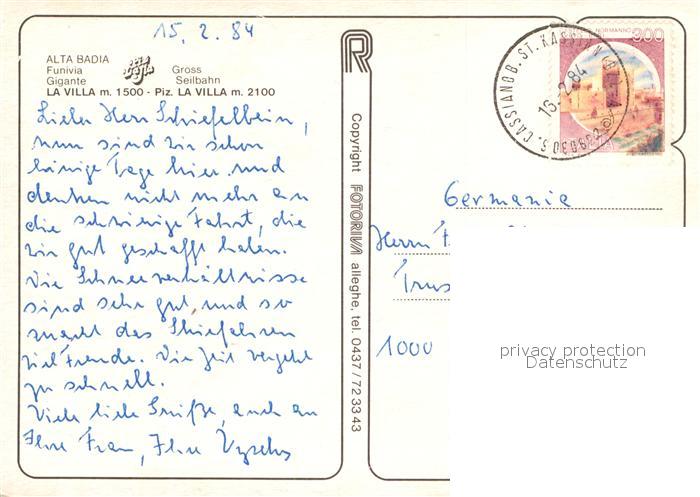 15. 2. 84
ALTA BADIA
Funivia Gross
Gigante Seilbahn
LA VILLA m. 1500 - Piz. LA VILLA m. 2100
Lieber Herr Schiefelbein,
nun sind wir schon
einige Tage hier und
denken nicht mehr an
die schwierige Fahrt, die
wir gut geschafft haben.
Die Schneeverhältnisse
sind sehr gut und so
macht das Skiefahren
viel Freude. Die Zeit vergeht
zu schnell.
Viele liebe Grüße, auch an
Ihre Frau, Ihre
R
Copyright FOTORIVA alleghe, tel. 0437/723343
S. CASSIANO B. ST. KASSIAN
16-2.84
NORMANNO
300
Germania
Herrn
Trus
1000
privacy protection
Datenschutz